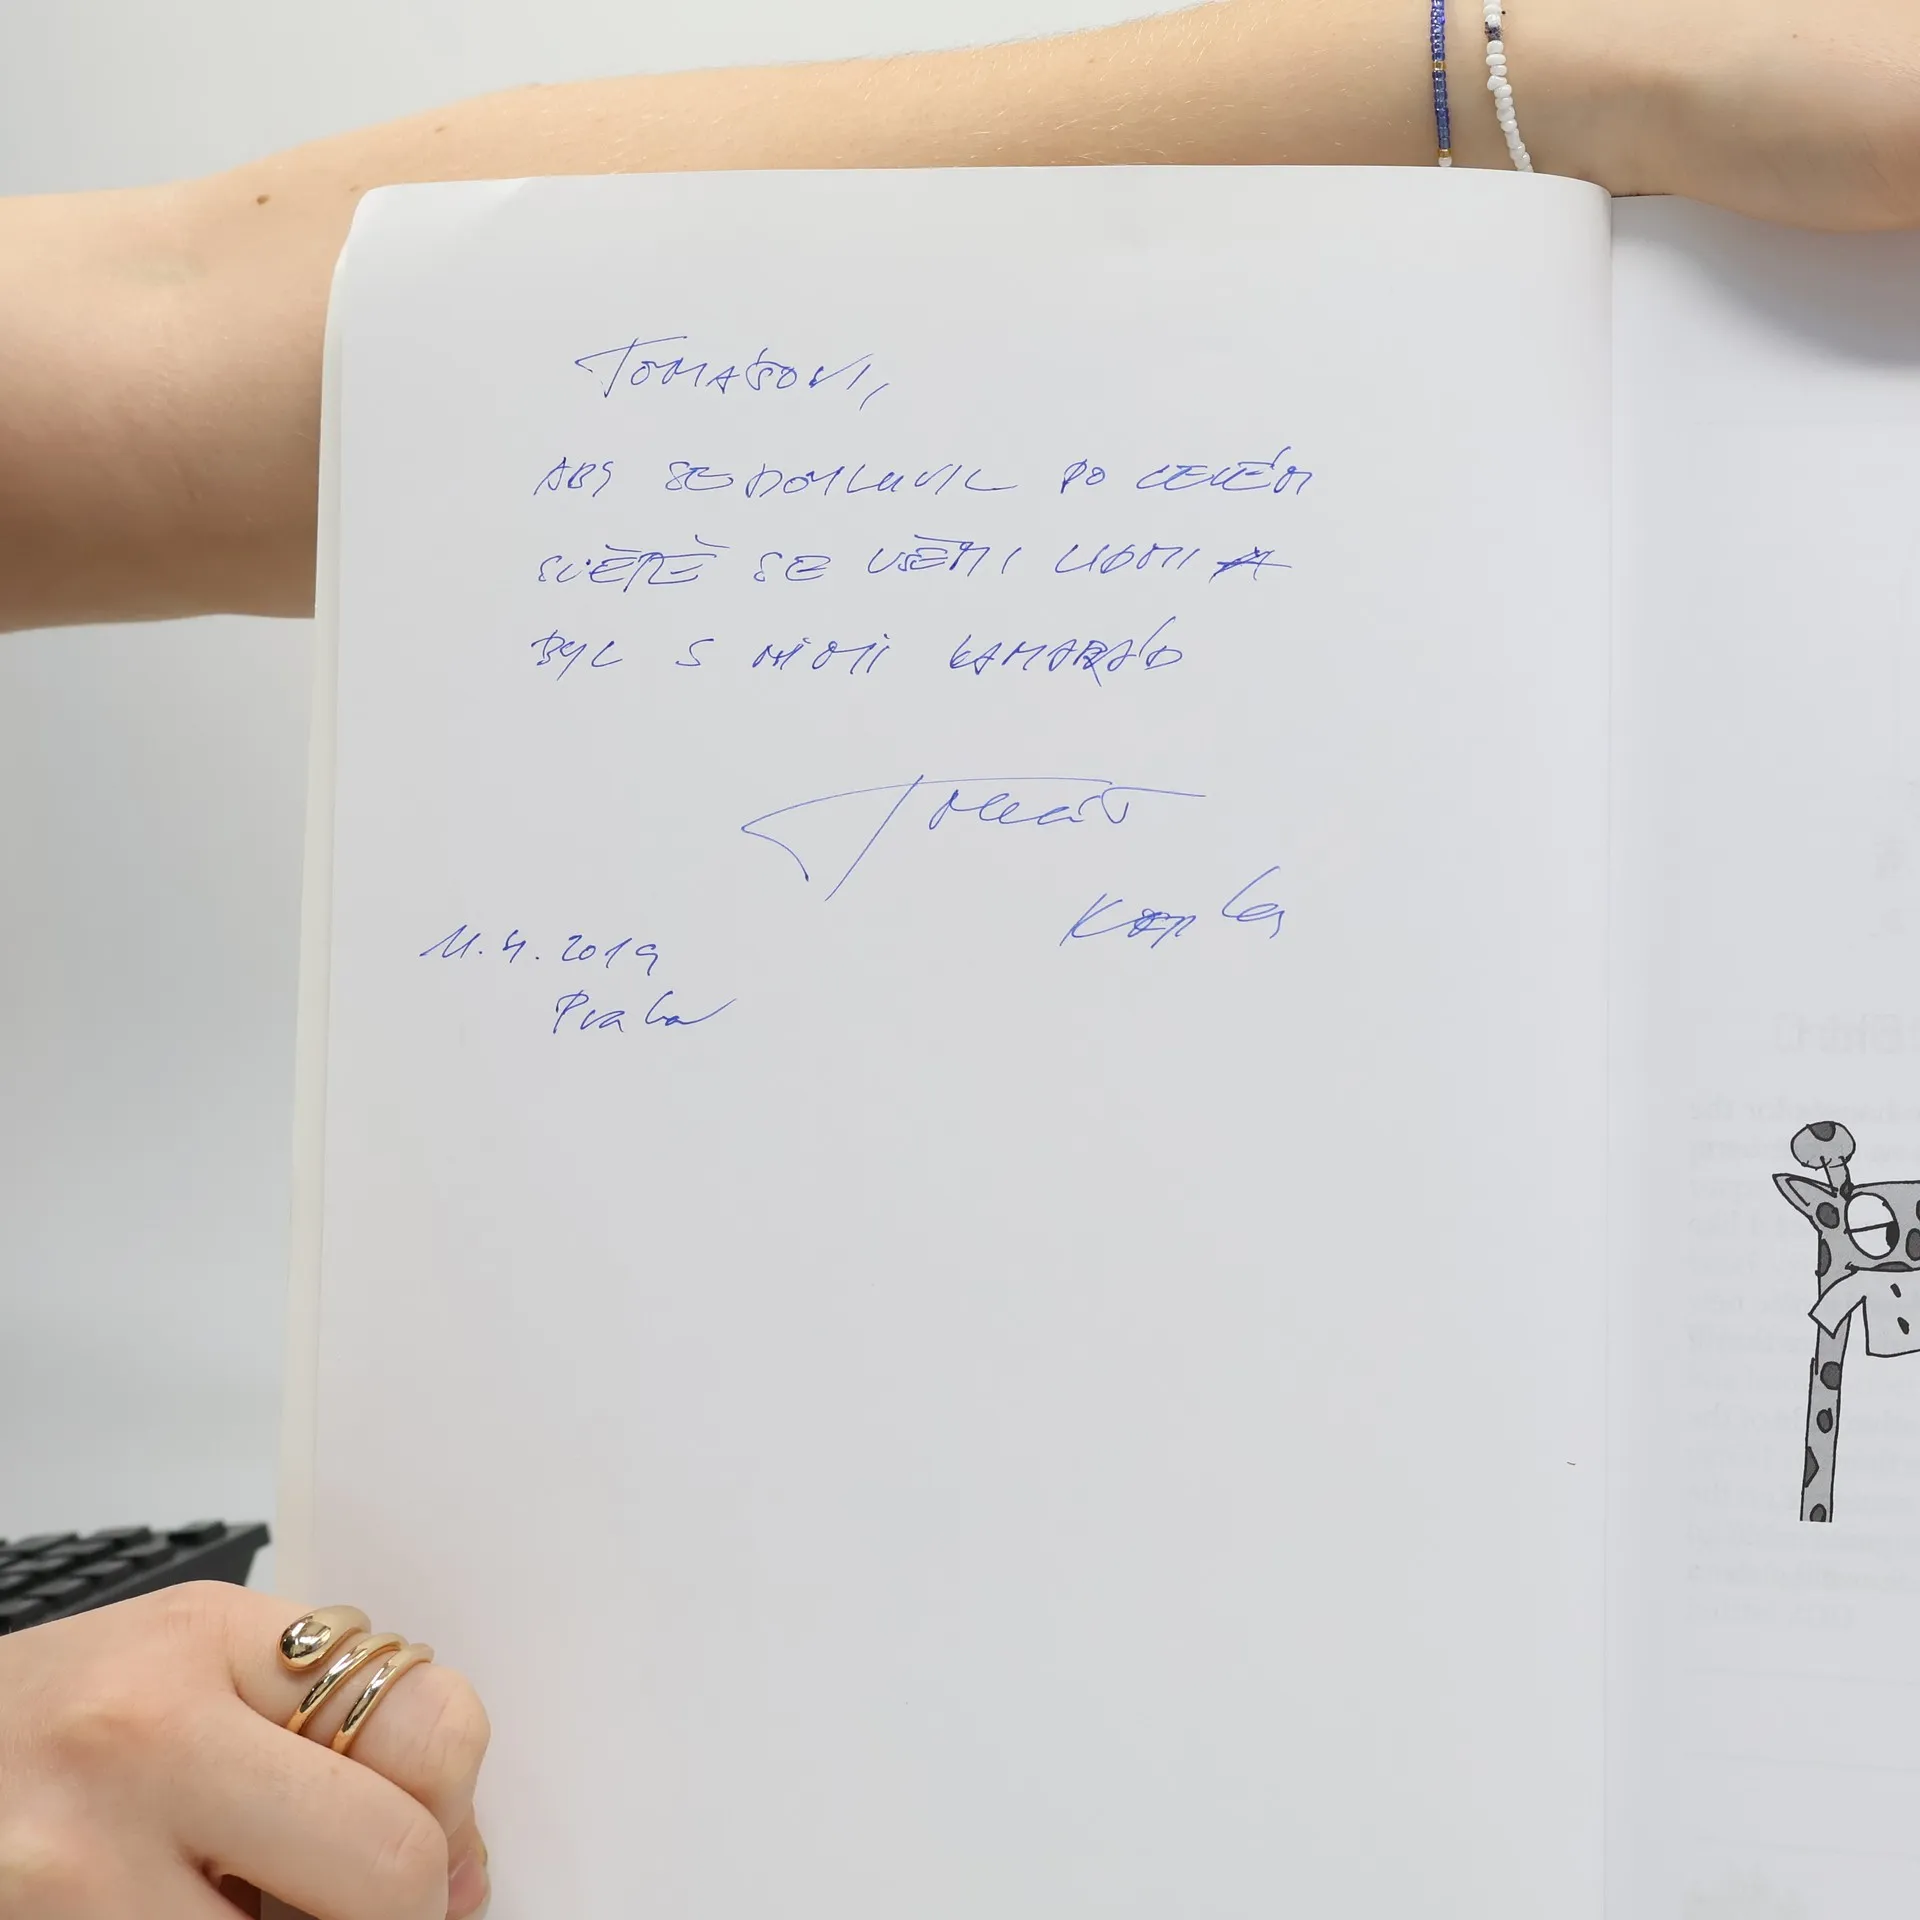 TOMÁŠOVI,
ABY SE DOMLUVIL PO CELÉM
SVĚTĚ SE VŠEMI LIDMI A
BYL S NIMI KAMARÁD
Tomáš
11. 4. 2019
Praha